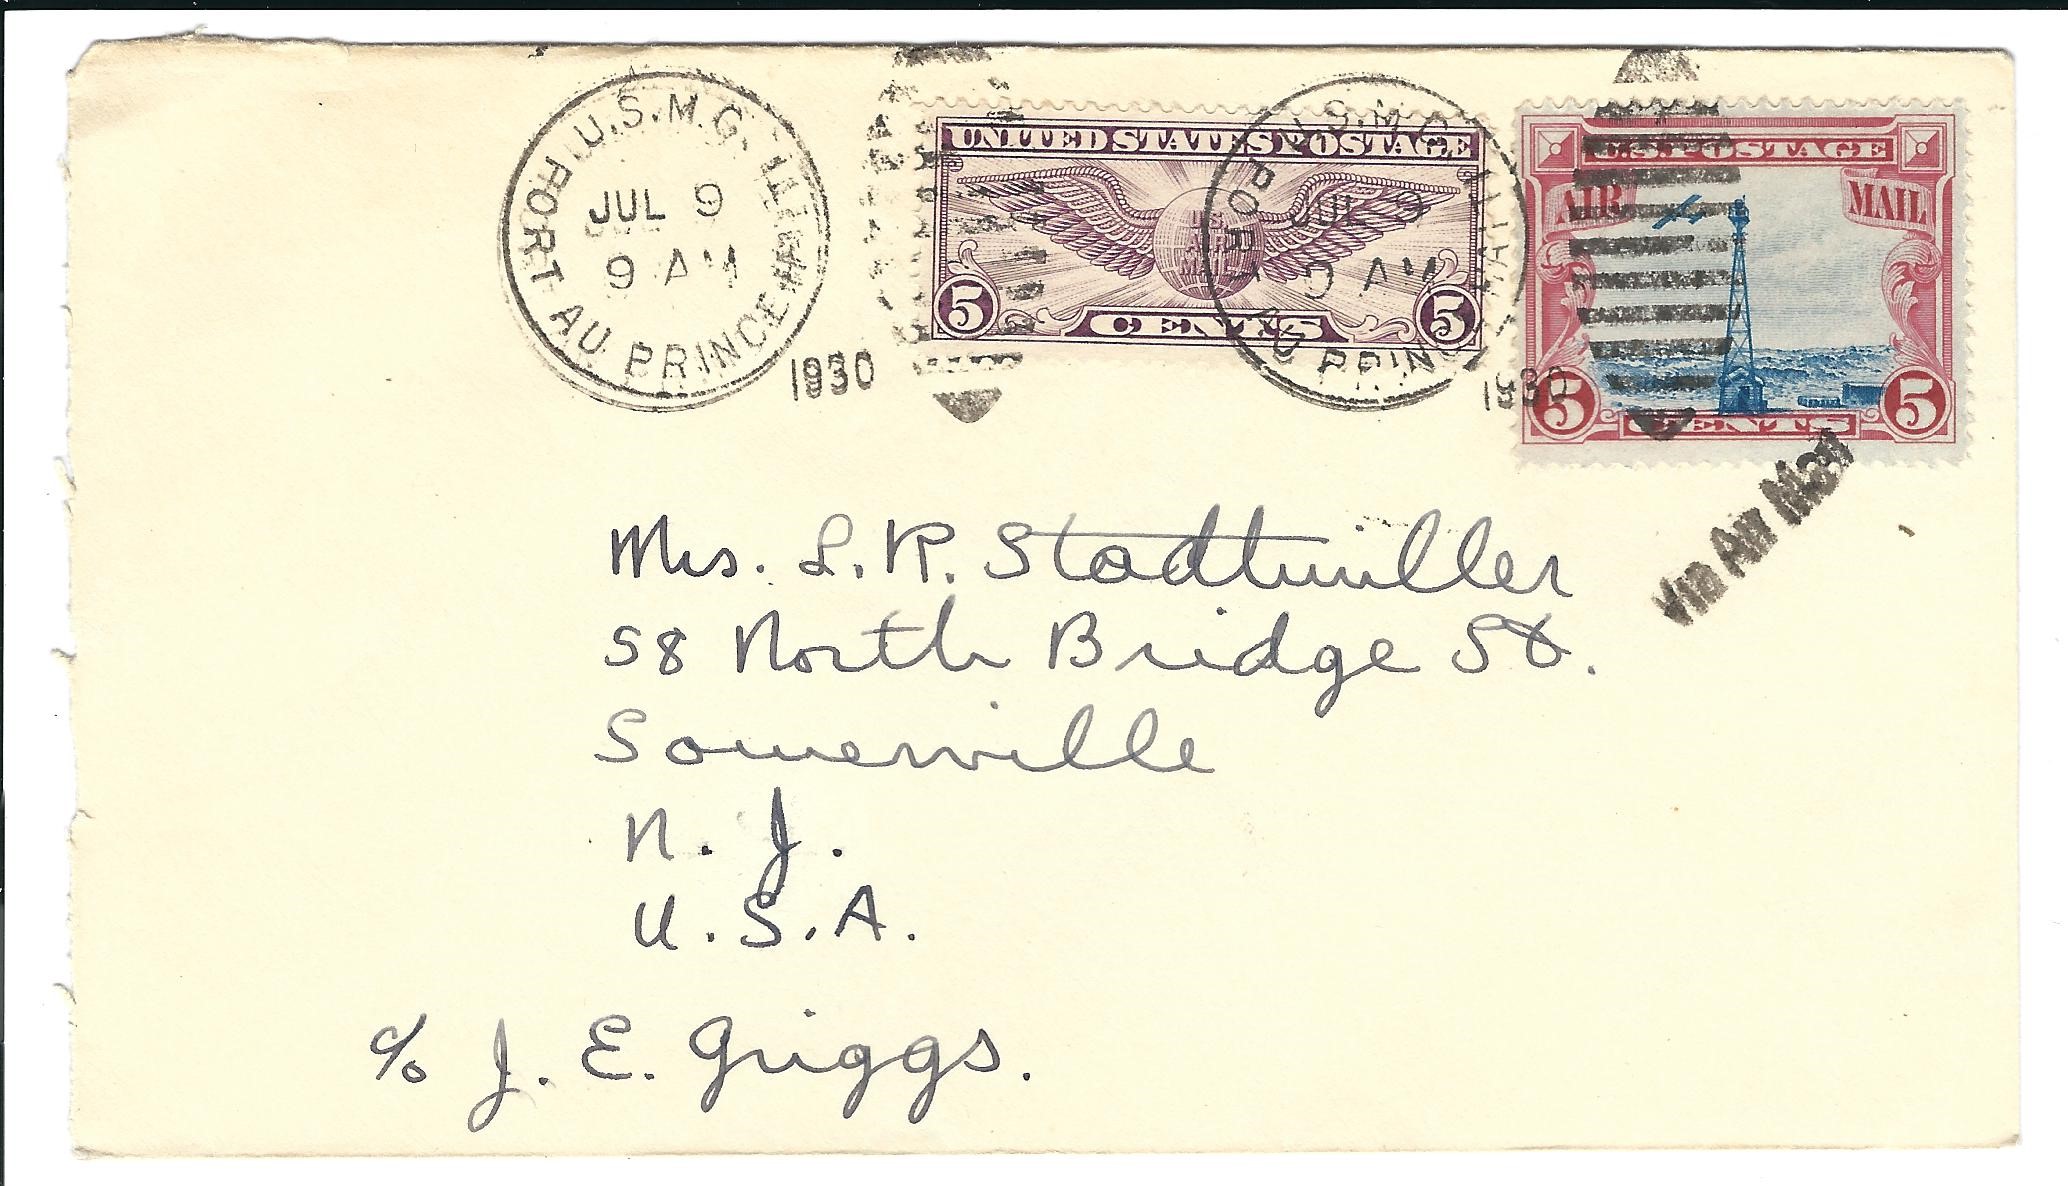 U.S.M.C. HAITI
PORT AU PRINCE
JUL 9
9 AM
1930
UNITED STATES POSTAGE
U.S.
AIR
MAIL
5 CENTS 5
U.S.M.C. HAITI
PORT AU PRINCE
JUL 9
9 AM
1930
U.S. POSTAGE
AIR MAIL
5 CENTS 5
Via Air Mail
Mrs. L. R. Stadtmiller
58 North Bridge St.
Somerville
N. J.
U.S.A.
c/o J. E. Griggs.